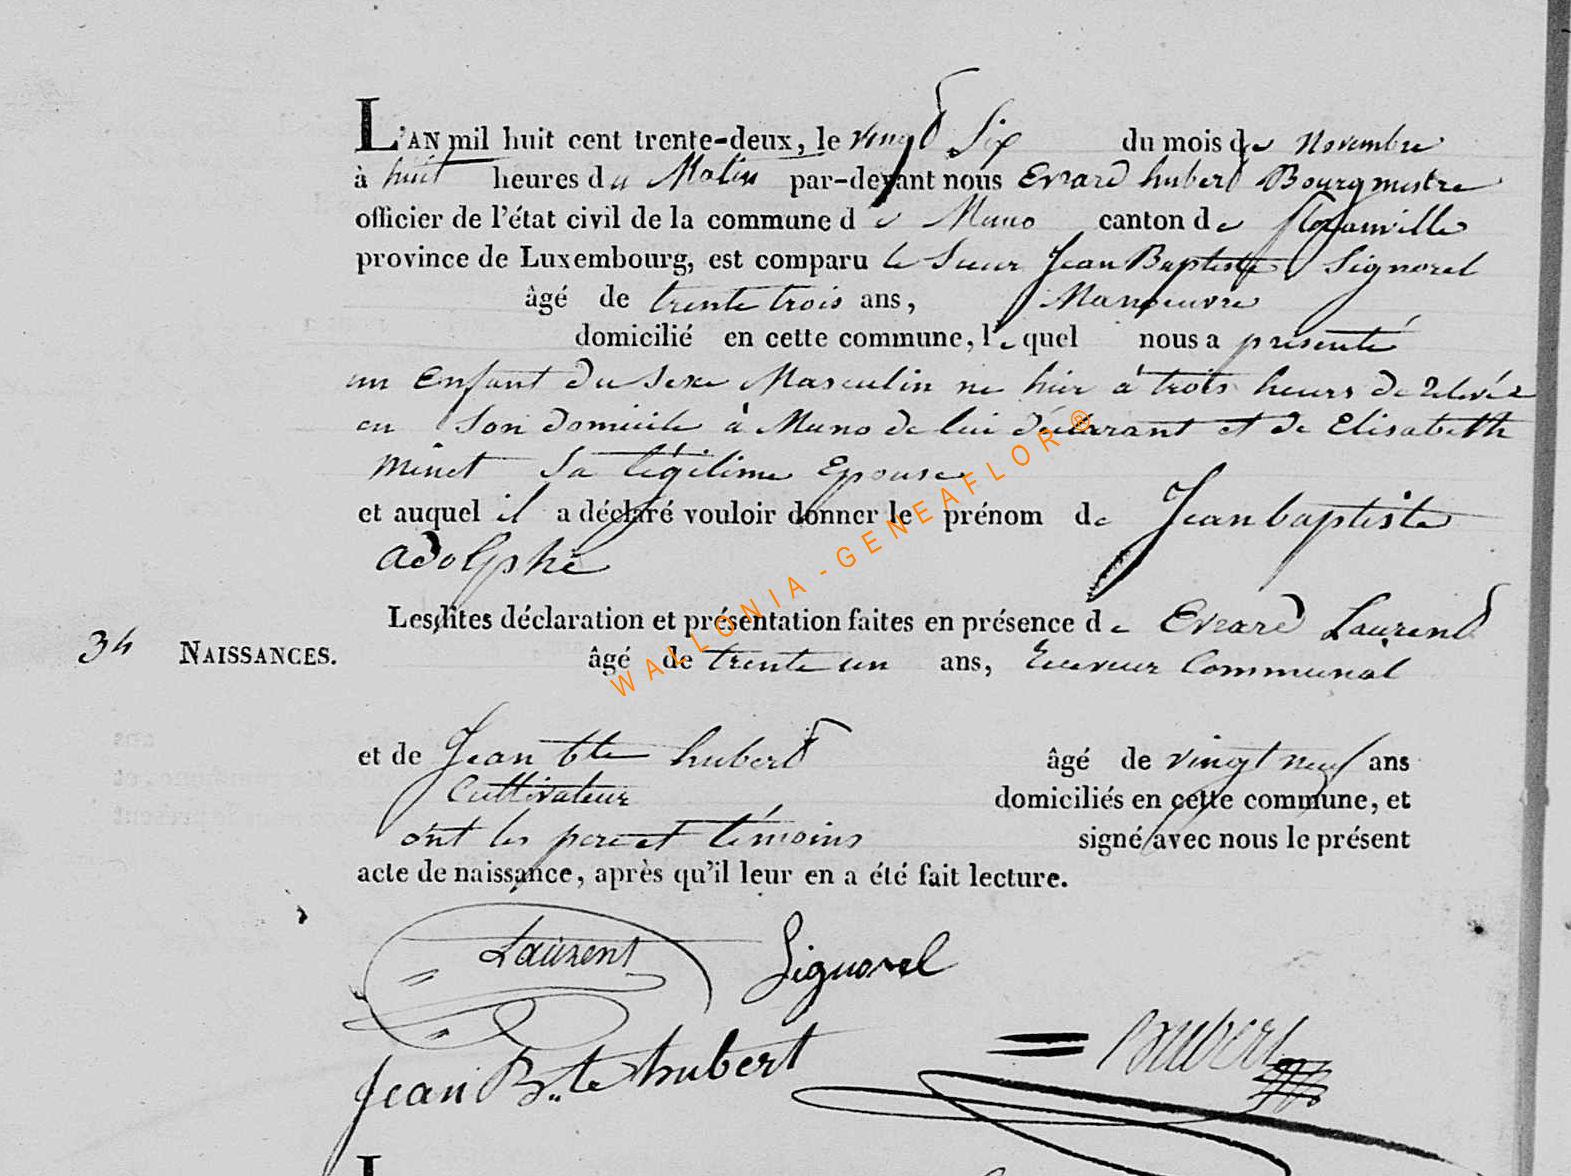 L'AN mil huit cent trente-deux, le vingt Six du mois de Novembre
à huit heures du Matin par-devant nous Evrard hubert Bourgmestre
officier de l'état civil de la commune de Muno canton de florenville
province de Luxembourg, est comparu le Sieur Jean Baptiste Signorel
âgé de trente trois ans, Manoeuvre
domicilié en cette commune, lequel nous a présenté
un Enfant du Sexe Masculin né hier à trois heurs de relevée
en Son domicile à Muno de lui déclarant et de Elisabeth
Minet Sa légitime Epouse
et auquel il a déclaré vouloir donner le prénom de Jean baptiste
adolphe
Lesdites déclaration et présentation faites en présence de Evrard Laurent
34 NAISSANCES. âgé de trente un ans, Receveur Communal
et de Jean bte hubert âgé de vingt neuf ans
Cultivateur domiciliés en cette commune, et
ont les pere et témoins signé avec nous le présent
acte de naissance, après qu'il leur en a été fait lecture.
Laurent Signorel
Jean Bte hubert hubert
WALLONIA - GENEAFLOR®